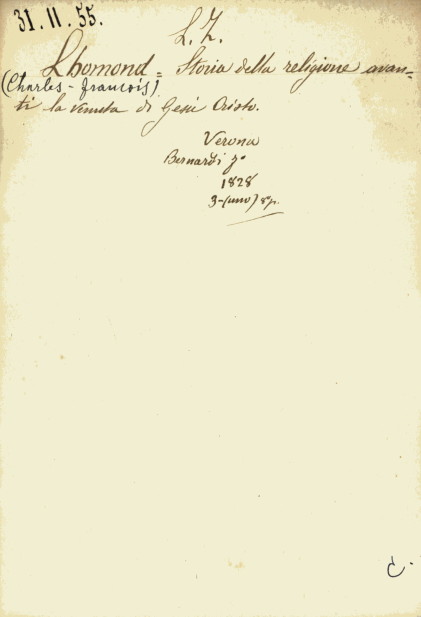 31. 11. 55.
L. Z.
Lhomond = Storia della religione avan=
(Charles-François)
ti la venuta di Gesù Cristo.
Verona
Bernardi
1828
3-(uno) 8º p.
C.